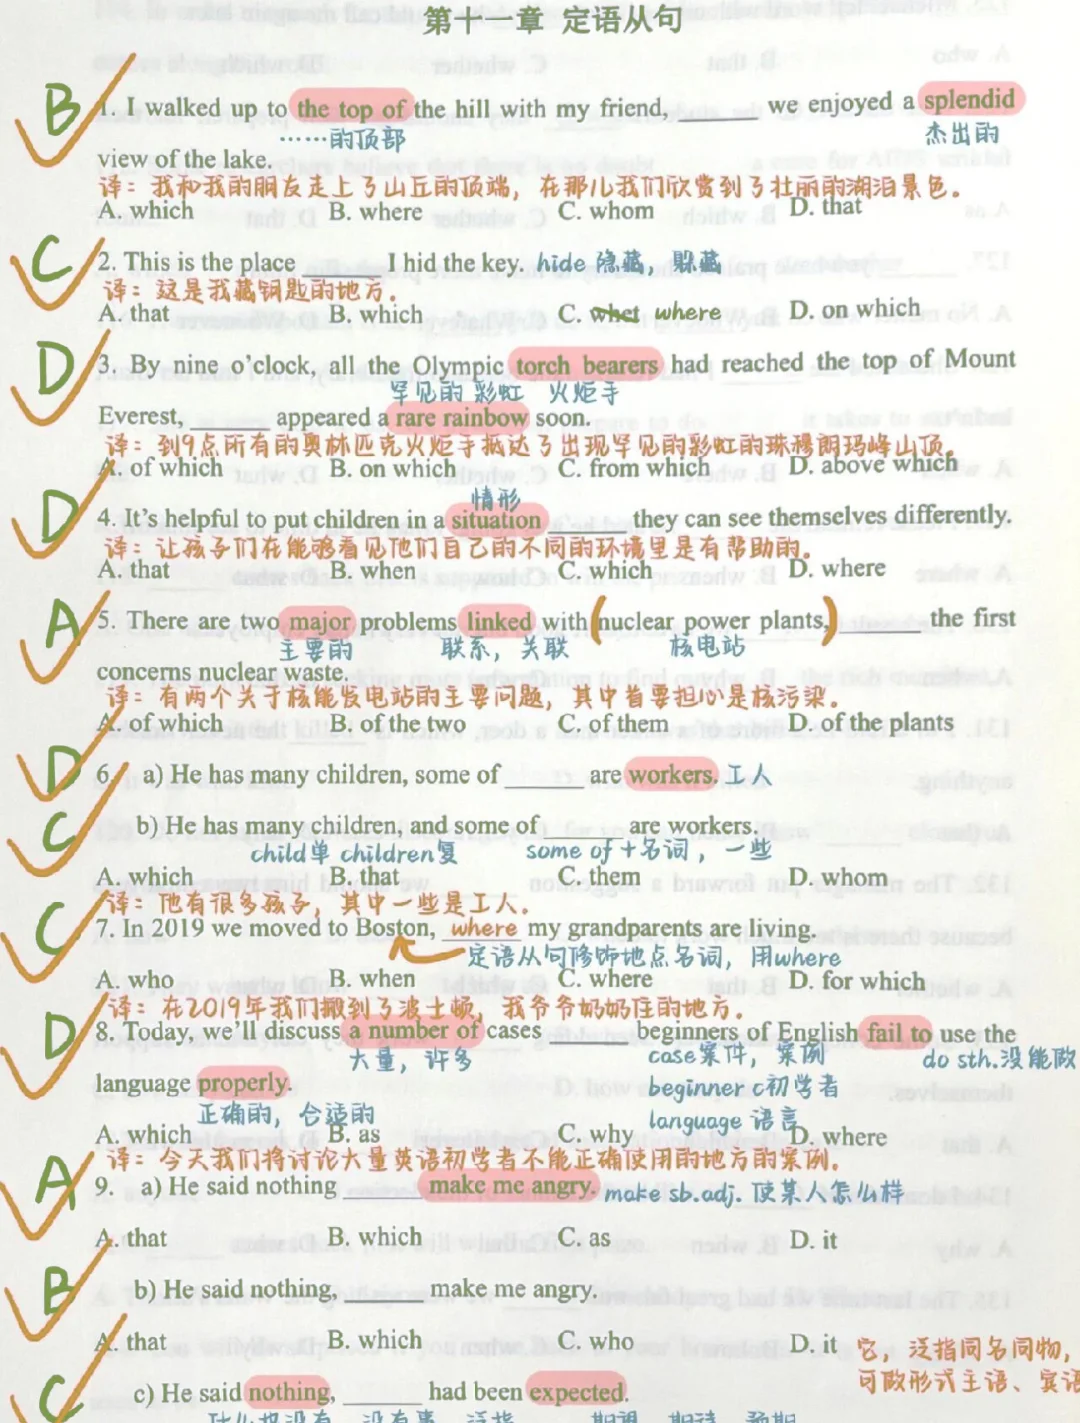 第十一章 定语从句
B
1. I walked up to the top of the hill with my friend, ____ we enjoyed a splendid
……的顶部 杰出的
view of the lake.
译：我和我的朋友走上了山丘的顶端，在那儿我们欣赏到了壮丽的湖泊景色。
A. which B. where C. whom D. that
C
2. This is the place ____ I hid the key. hide 隐藏，躲藏
译：这是我藏钥匙的地方。
A. that B. which C. what where D. on which
D
3. By nine o'clock, all the Olympic torch bearers had reached the top of Mount
罕见的 彩虹 火炬手
Everest, ____ appeared a rare rainbow soon.
译：到9点所有的奥林匹克火炬手抵达了出现罕见的彩虹的珠穆朗玛峰山顶。
A. of which B. on which C. from which D. above which
情形
D
4. It's helpful to put children in a situation ____ they can see themselves differently.
译：让孩子们在能够看见他们自己的不同的环境里是有帮助的。
A. that B. when C. which D. where
A
5. There are two major problems linked with (nuclear power plants,) ____ the first
主要的 联系，关联 核电站
concerns nuclear waste.
译：有两个关于核能发电站的主要问题，其中首要担心是核污染。
A. of which B. of the two C. of them D. of the plants
D
6. a) He has many children, some of ____ are workers. 工人
C
b) He has many children, and some of ____ are workers.
child单 children复 some of +名词，一些
A. which B. that C. them D. whom
译：他有很多孩子，其中一些是工人。
C
7. In 2019 we moved to Boston, where my grandparents are living.
定语从句修饰地点名词，用where
A. who B. when C. where D. for which
译：在2019年我们搬到了波士顿，我爷爷奶奶住的地方。
D
8. Today, we'll discuss a number of cases ____ beginners of English fail to use the
大量，许多 case案件，案例 do sth.没能做
language properly. beginner c初学者
正确的，合适的 language 语言
A. which B. as C. why D. where
译：今天我们将讨论大量英语初学者不能正确使用的地方的案例。
A
9. a) He said nothing ____ make me angry. make sb.adj. 使某人怎么样
A. that B. which C. as D. it
B
b) He said nothing, ____ make me angry.
A. that B. which C. who D. it 它，泛指同名同物，
可做形式主语、宾语
C
c) He said nothing, ____ had been expected.